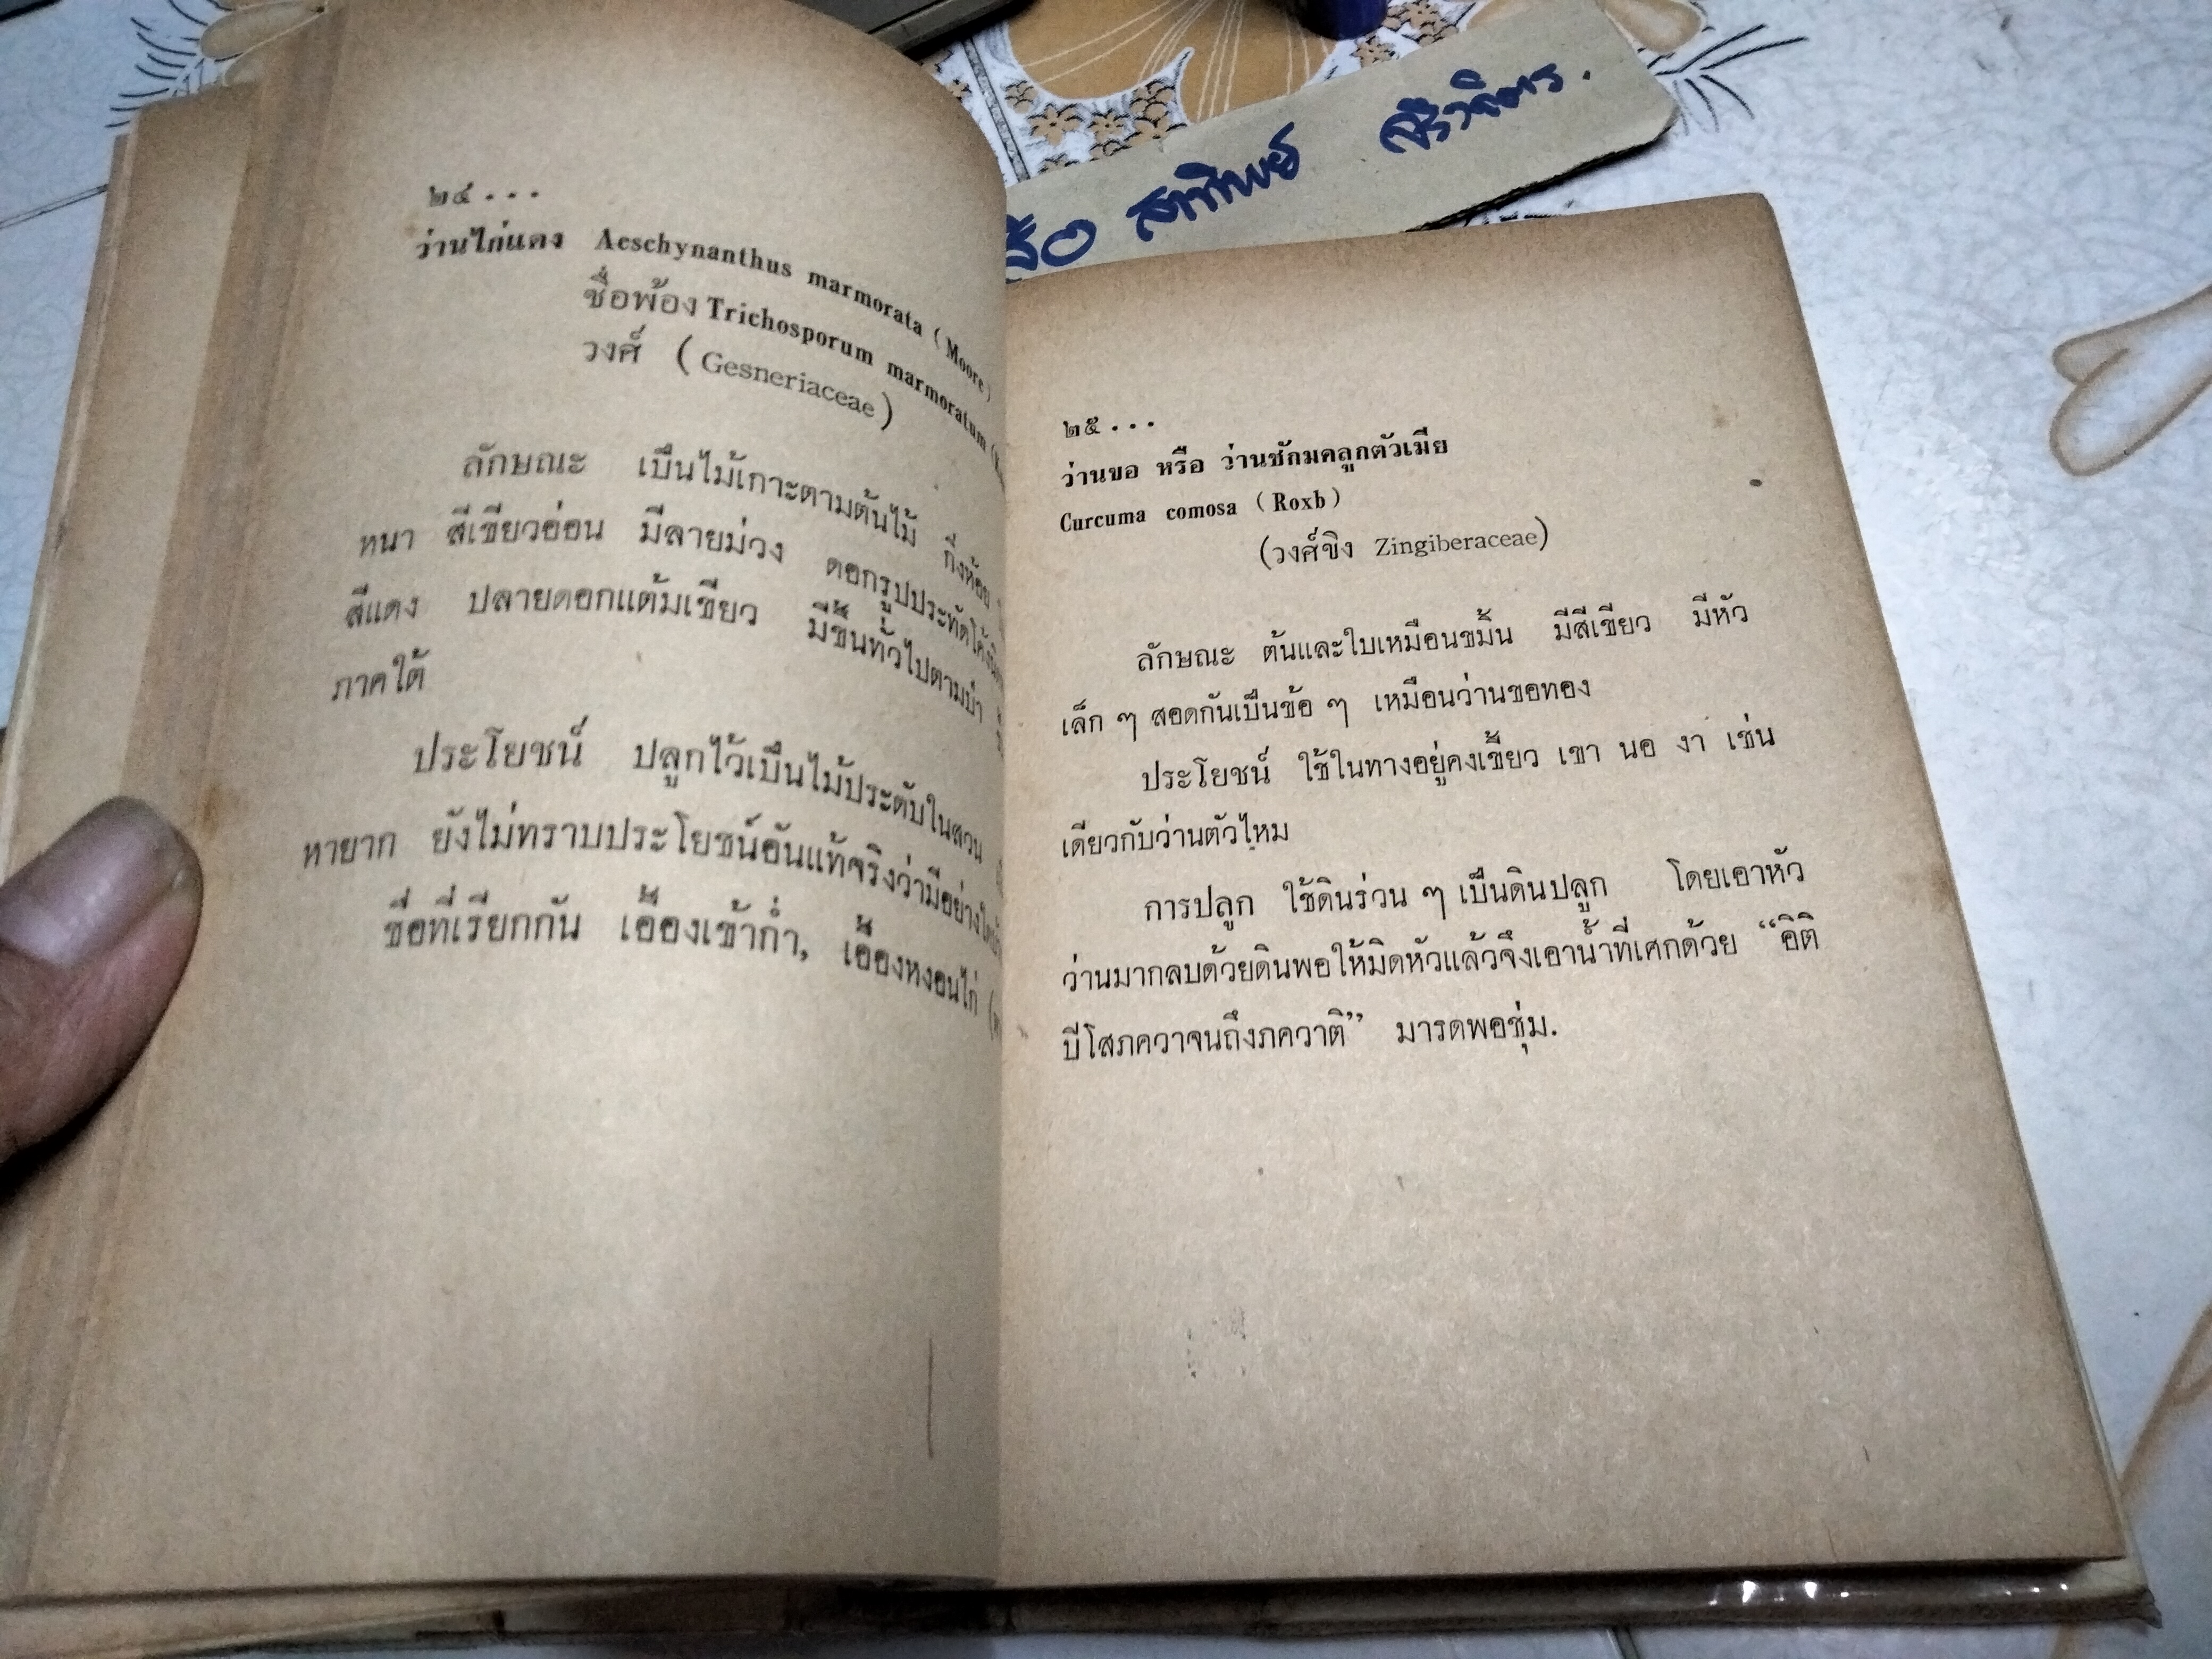 ๒๔...
ว่านไก่แดง Aeschynanthus marmorata (Moore)
ชื่อพ้อง Trichosporum marmoratum
วงศ์ (Gesneriaceae)
ลักษณะ เป็นไม้เกาะตามต้นไม้ กิ่งห้อย
หนา สีเขียวอ่อน มีลายม่วง ดอกรูปประทัดโค้ง
สีแดง ปลายดอกแต้มเขียว มีขึ้นทั่วไปตามป่า
ภาคใต้
ประโยชน์ ปลูกไว้เป็นไม้ประดับในสวน
หายาก ยังไม่ทราบประโยชน์อันแท้จริงว่ามีอย่างใด
ชื่อที่เรียกกัน เอื้องเข้าก่ำ, เอื้องหงอนไก่
สาทิพย์
๒๕...
ว่านขอ หรือ ว่านชักมดลูกตัวเมีย
Curcuma comosa (Roxb)
(วงศ์ขิง Zingiberaceae)
ลักษณะ ต้นและใบเหมือนขมิ้น มีสีเขียว มีหัว
เล็ก ๆ สอดกันเป็นข้อ ๆ เหมือนว่านขอทอง
ประโยชน์ ใช้ในทางอยู่คงเขี้ยว เขา นอ งา เช่น
เดียวกับว่านตัวไหม
การปลูก ใช้ดินร่วน ๆ เป็นดินปลูก โดยเอาหัว
ว่านมากลบด้วยดินพอให้มิดหัวแล้วจึงเอาน้ำที่เศกด้วย “อิติ
ปิโสภควาจนถึงภควาติ” มารดพอชุ่ม.